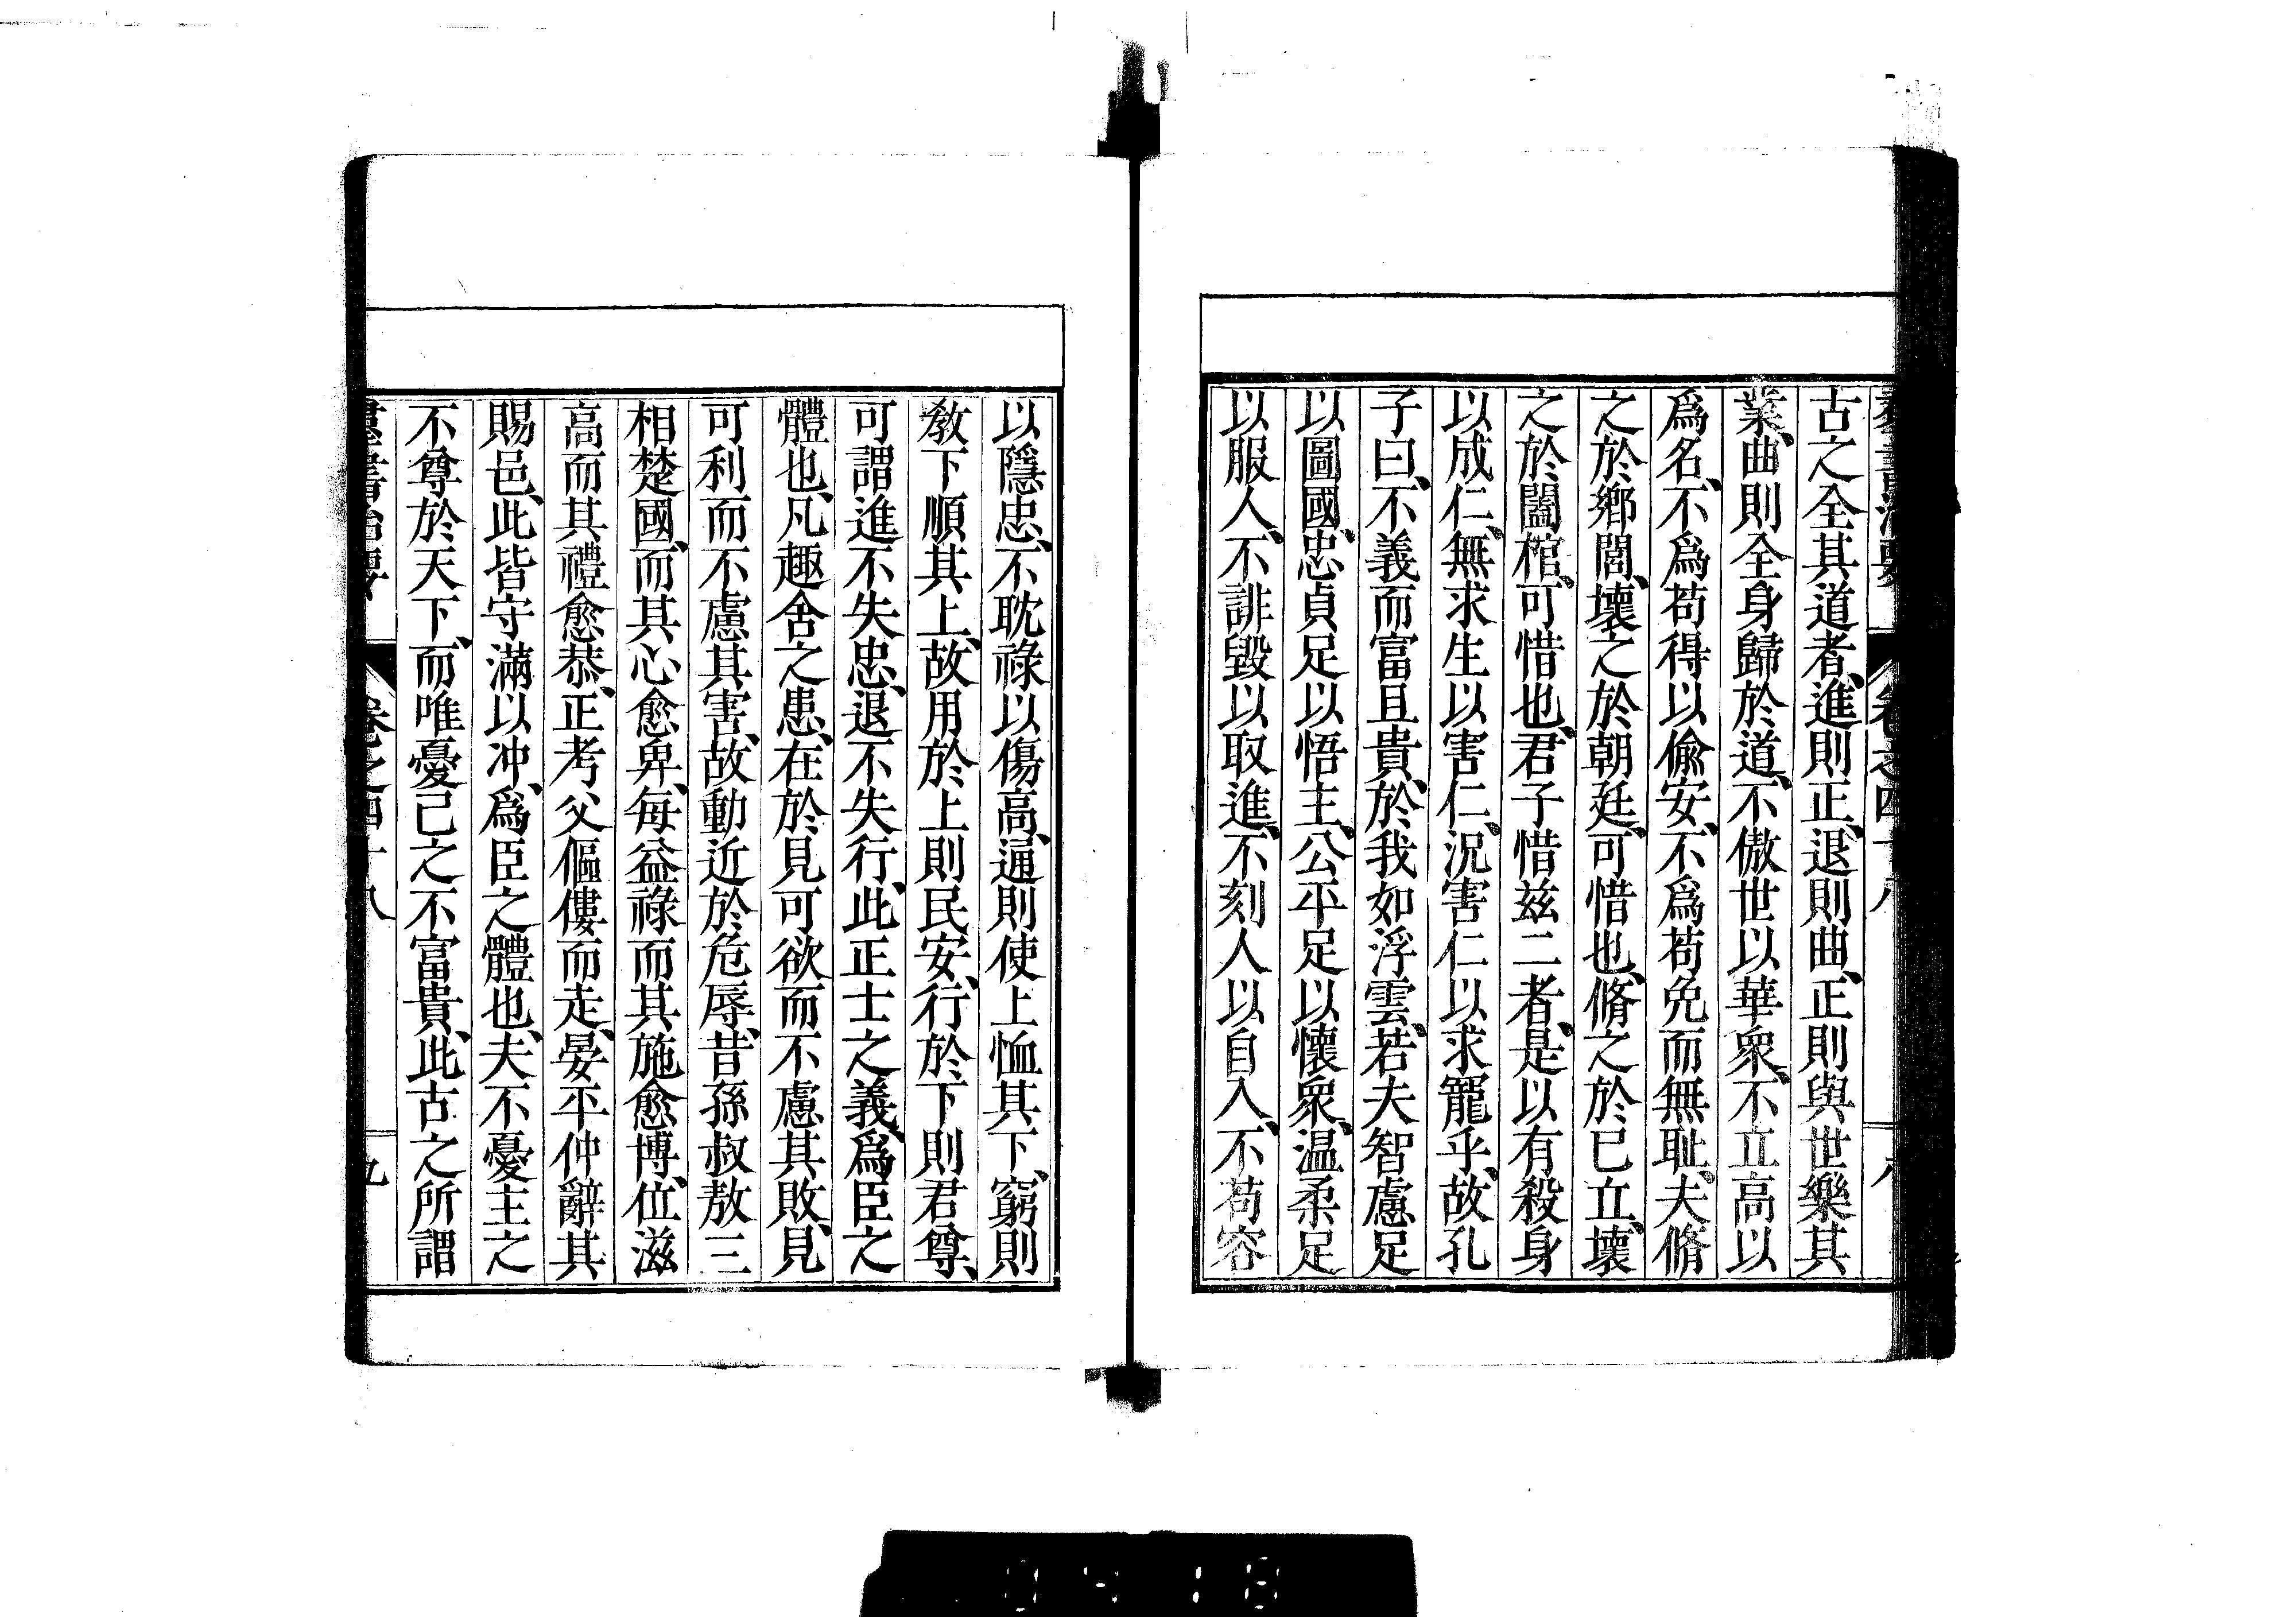 羣書治要 卷之四十八 八
古之全其道者、進則正、退則曲、正則與世樂其
業、曲則全身歸於道、不傲世以華衆、不立高以
爲名、不爲苟得以偸安、不爲苟免而無耻、夫脩
之於鄕閭、壞之於朝廷、可惜也、脩之於已立、壞
之於闔棺、可惜也、君子惜茲二者、是以有殺身
以成仁、無求生以害仁、況害仁以求寵乎、故孔
子曰、不義而富且貴、於我如浮雲、若夫智慮足
以圖國、忠貞足以悟主、公平足以懷衆、温柔足
以服人、不誹毀以取進、不刻人以自入、不苟容
以隱忠、不耽祿以傷高、通則使上恤其下、窮則
敎下順其上、故用於上則民安、行於下則君尊、
可謂進不失忠、退不失行、此正士之義、爲臣之
體也、凡趣舍之患、在於見可欲而不慮其敗、見
可利而不慮其害、故動近於危辱、昔孫叔敖三
相楚國、而其心愈卑、每益祿而其施愈博、位滋
高而其禮愈恭、正考父傴僂而走、晏平仲辭其
賜邑、此皆守滿以冲、爲臣之體也、夫不憂主之
不尊於天下、而唯憂己之不富貴、此古之所謂
羣書治要 卷之四十八 九